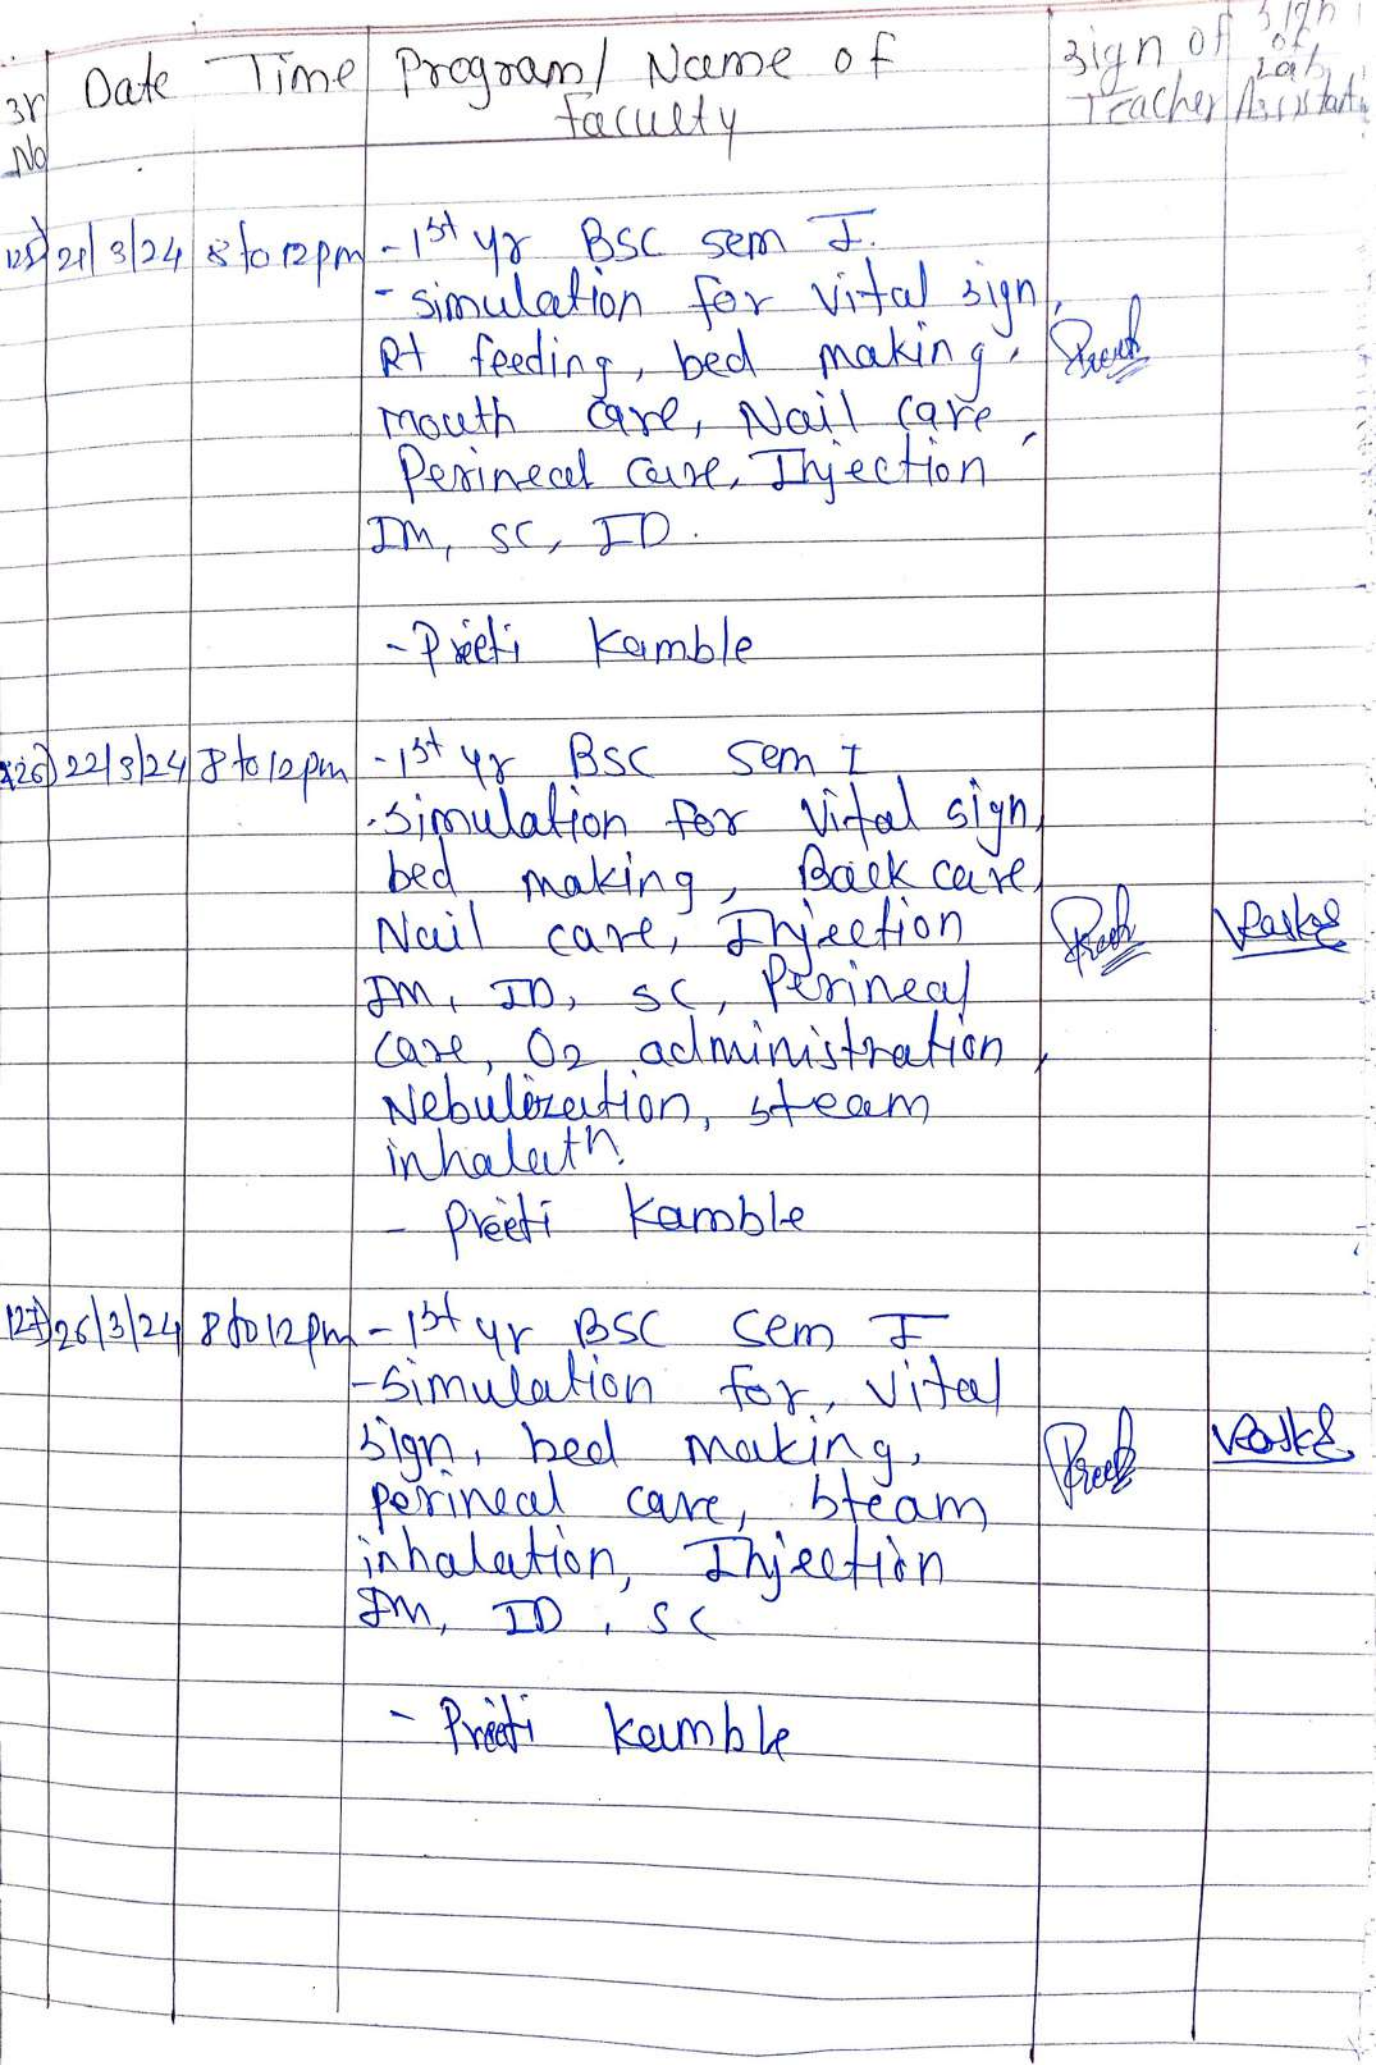 Sr No Date Time Program/ Name of faculty Sign of Teacher Sign of Lab Assistant
125) 21/3/24 8 to 12pm - 1st yr BSC sem I.
- simulation for vital sign,
Rt feeding, bed making,
mouth care, Nail care,
Perineal care, Injection
IM, SC, ID.
- Preeti Kamble
126) 22/3/24 8 to 12pm - 1st yr BSC Sem I
- simulation for Vital sign,
bed making, Back care,
Nail care, Injection
IM, ID, SC, Perineal
care, O2 administration,
Nebulization, steam
inhalatn.
- Preeti Kamble
127) 26/3/24 8 to 12pm - 1st yr BSC Sem I
- Simulation for, vital
sign, bed making,
perineal care, steam
inhalation, Injection
IM, ID, SC
- Preeti Kamble